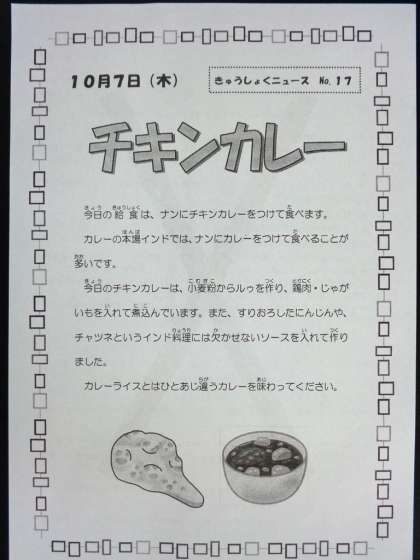 10月7日(木)
きゅうしょくニュース No.17
チキンカレー
今日の給食は、ナンにチキンカレーをつけて食べます。
カレーの本場インドでは、ナンにカレーをつけて食べることが
多いです。
今日のチキンカレーは、小麦粉からルゥを作り、鶏肉・じゃが
いもを入れて煮込んでいます。また、すりおろしたにんじんや、
チャツネというインド料理には欠かせないソースを入れて作り
ました。
カレーライスとはひとあじ違うカレーを味わってください。